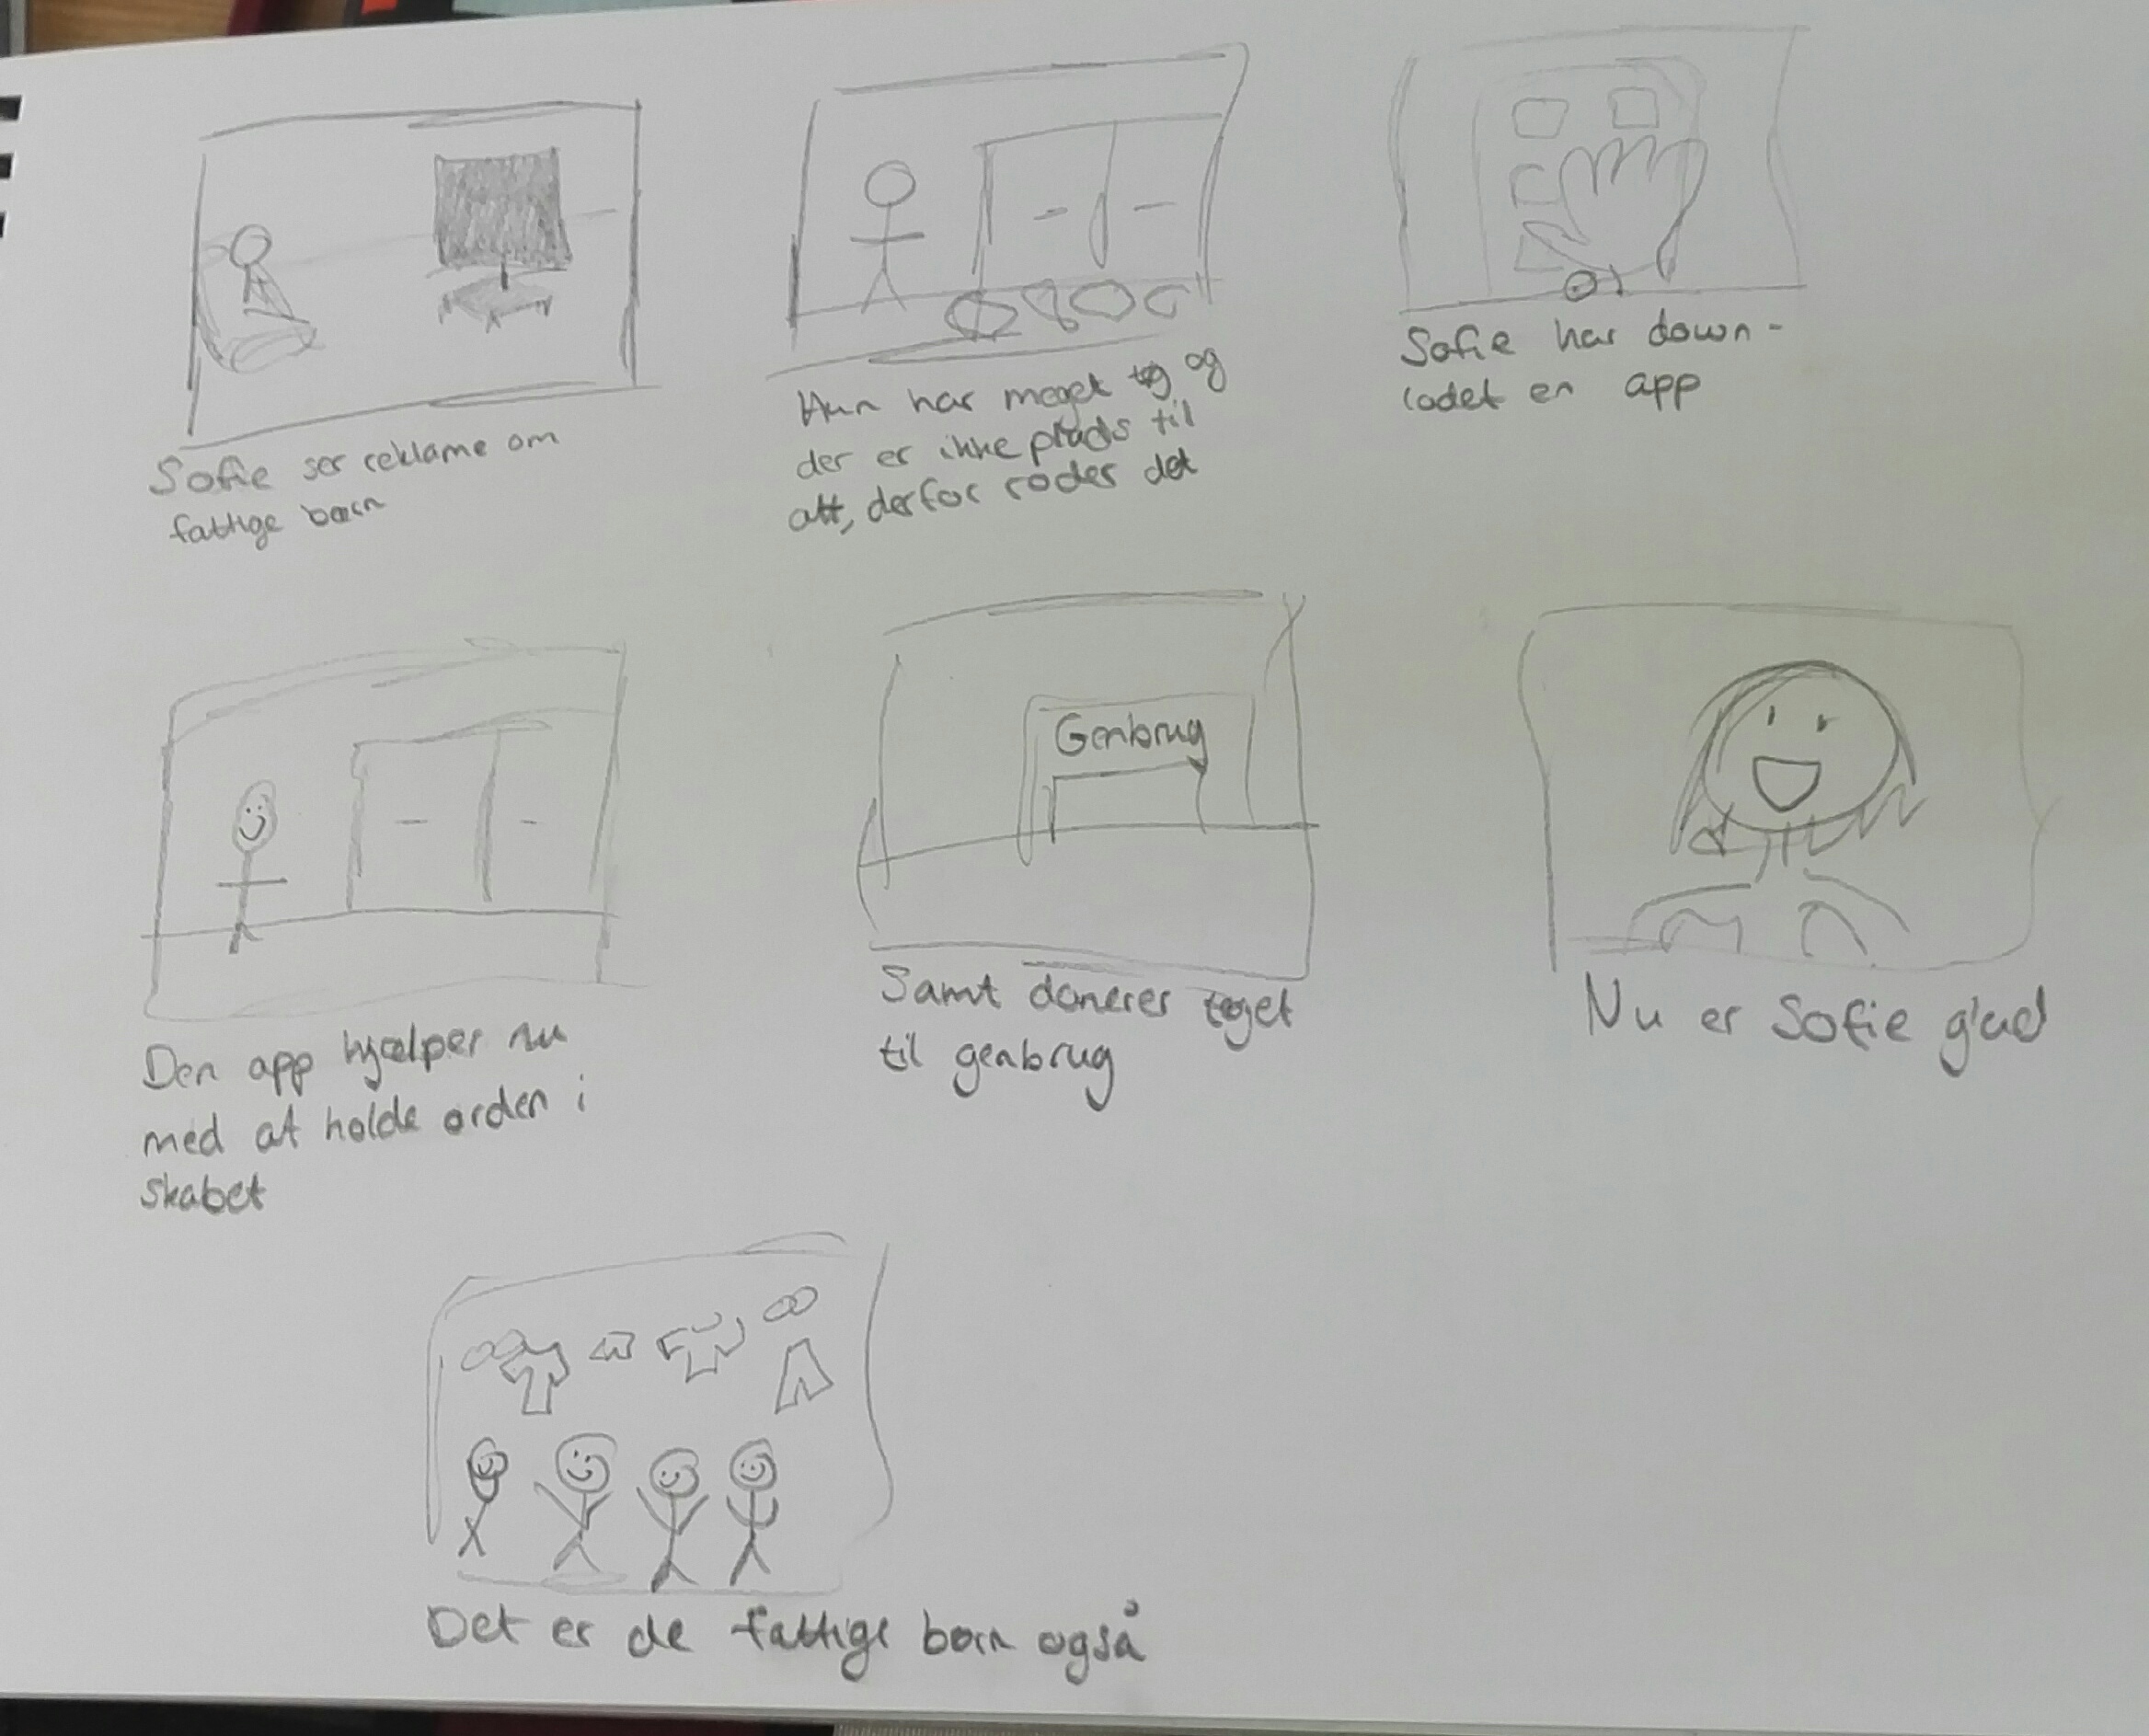 Sofie ser reklame om
fattige børn
Hun har meget tøj og
der er ikke plads til
alt, derfor roder det
Sofie har down-
lodet en app
Den app hjælper nu
med at holde orden i
skabet
Genbrug
Samt donerer tøjet
til genbrug
Nu er Sofie glad
Det er de fattige børn også